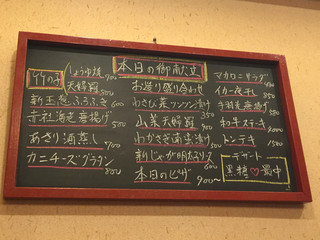 本日の御献立
竹の子
しょうゆ焼 700
天婦羅 500
新玉葱ふうふき 600
青社海老唐揚げ 500
あさり酒蒸し 700
カニチーズグラタン 800
お造り盛り合わせ
わさび菜ツンツン漬け 400
山菜天婦羅 900
わかさぎ南蛮漬け 500
新じゃが明太チーズ 600
本日のピザ 900〜
マカロニサラダ 450
イカ一夜干し 350
手羽先唐揚げ 550
和牛ステーキ 2000
トンテキ 1500
デザート
黒糖♡最中